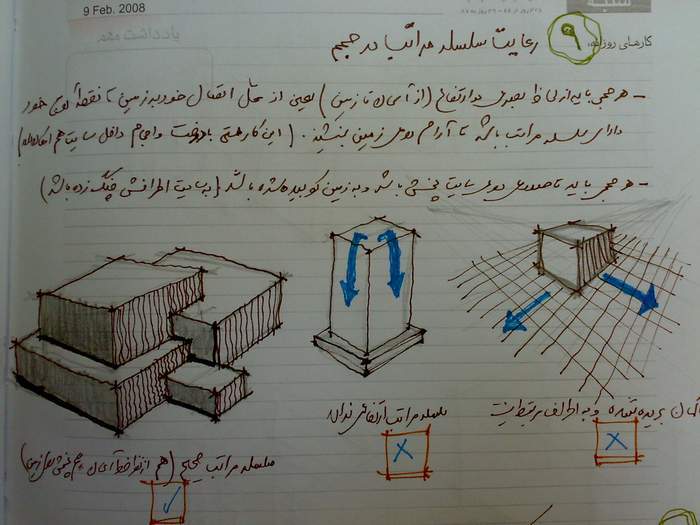 9 Feb. 2008
یادداشت مهم
کارهای روزانه:
۹ رعایت سلسله مراتب در حجم
- هر حجمی باید از لحاظ بصری در ارتفاع (از آسمان تا زمین) یعنی از محل اتصال خود به زمین تا نقطه اوج خود
دارای سلسله مراتب باشد تا آرام روی زمین بنشیند. (این کار حتی با درخت و احجام داخل سایت هم
- هر حجمی باید تا حدودی روی سایت پخش باشد و به زمین کوبیده شده باشد (به سایت اطرافش چنگ زده باشد)
آسمان بریده نشده و به اطراف مرتبط نیست
X
سلسله مراتب ارتفاعی ندارد
X
سلسله مراتب صحیح (هم از نظر خط آسمان و هم پخشی روی زمین)
✓